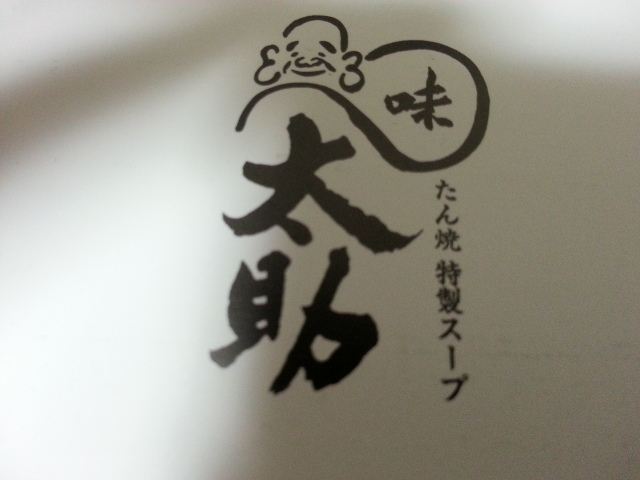 味
太助
たん焼 特製スープ